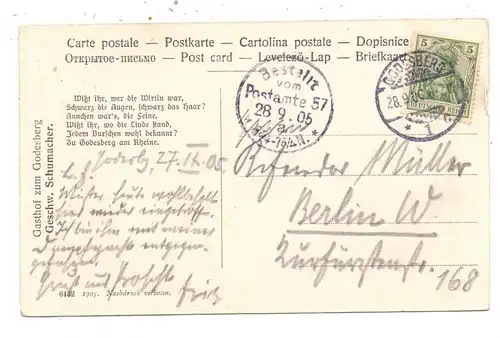 Carte postale — Postkarte — Cartolina postale — Dopisnice
Открытое-письмо — Post card — Levelező-Lap — Briefkaart
Wißt ihr, wer die Wirtin war,
Schwarz die Augen, schwarz das Haar?
Ännchen war's, die Feine.
Wißt ihr, wo die Linde stand,
Jedem Burschen wohl bekannt?
Zu Godesberg am Rheine.
Gasthof zum Godesberg
Geschw. Schumacher.
Bestellt
vom
Postamte 57
28 9. 05
GODESBERG
28.9.
1
5 5
DEUTSCHES REICH
Godesbg, 27. IX 05.
L. J.
heute wohlbehalten
hier wieder
Ich bin ihm mit meiner
entgegen-
gefahren.
Gruß und Prosit
Fritz
Referendar Müller
Berlin W.
Kurfürstenstr.
168
6132 1905. Nachdruck verboten.